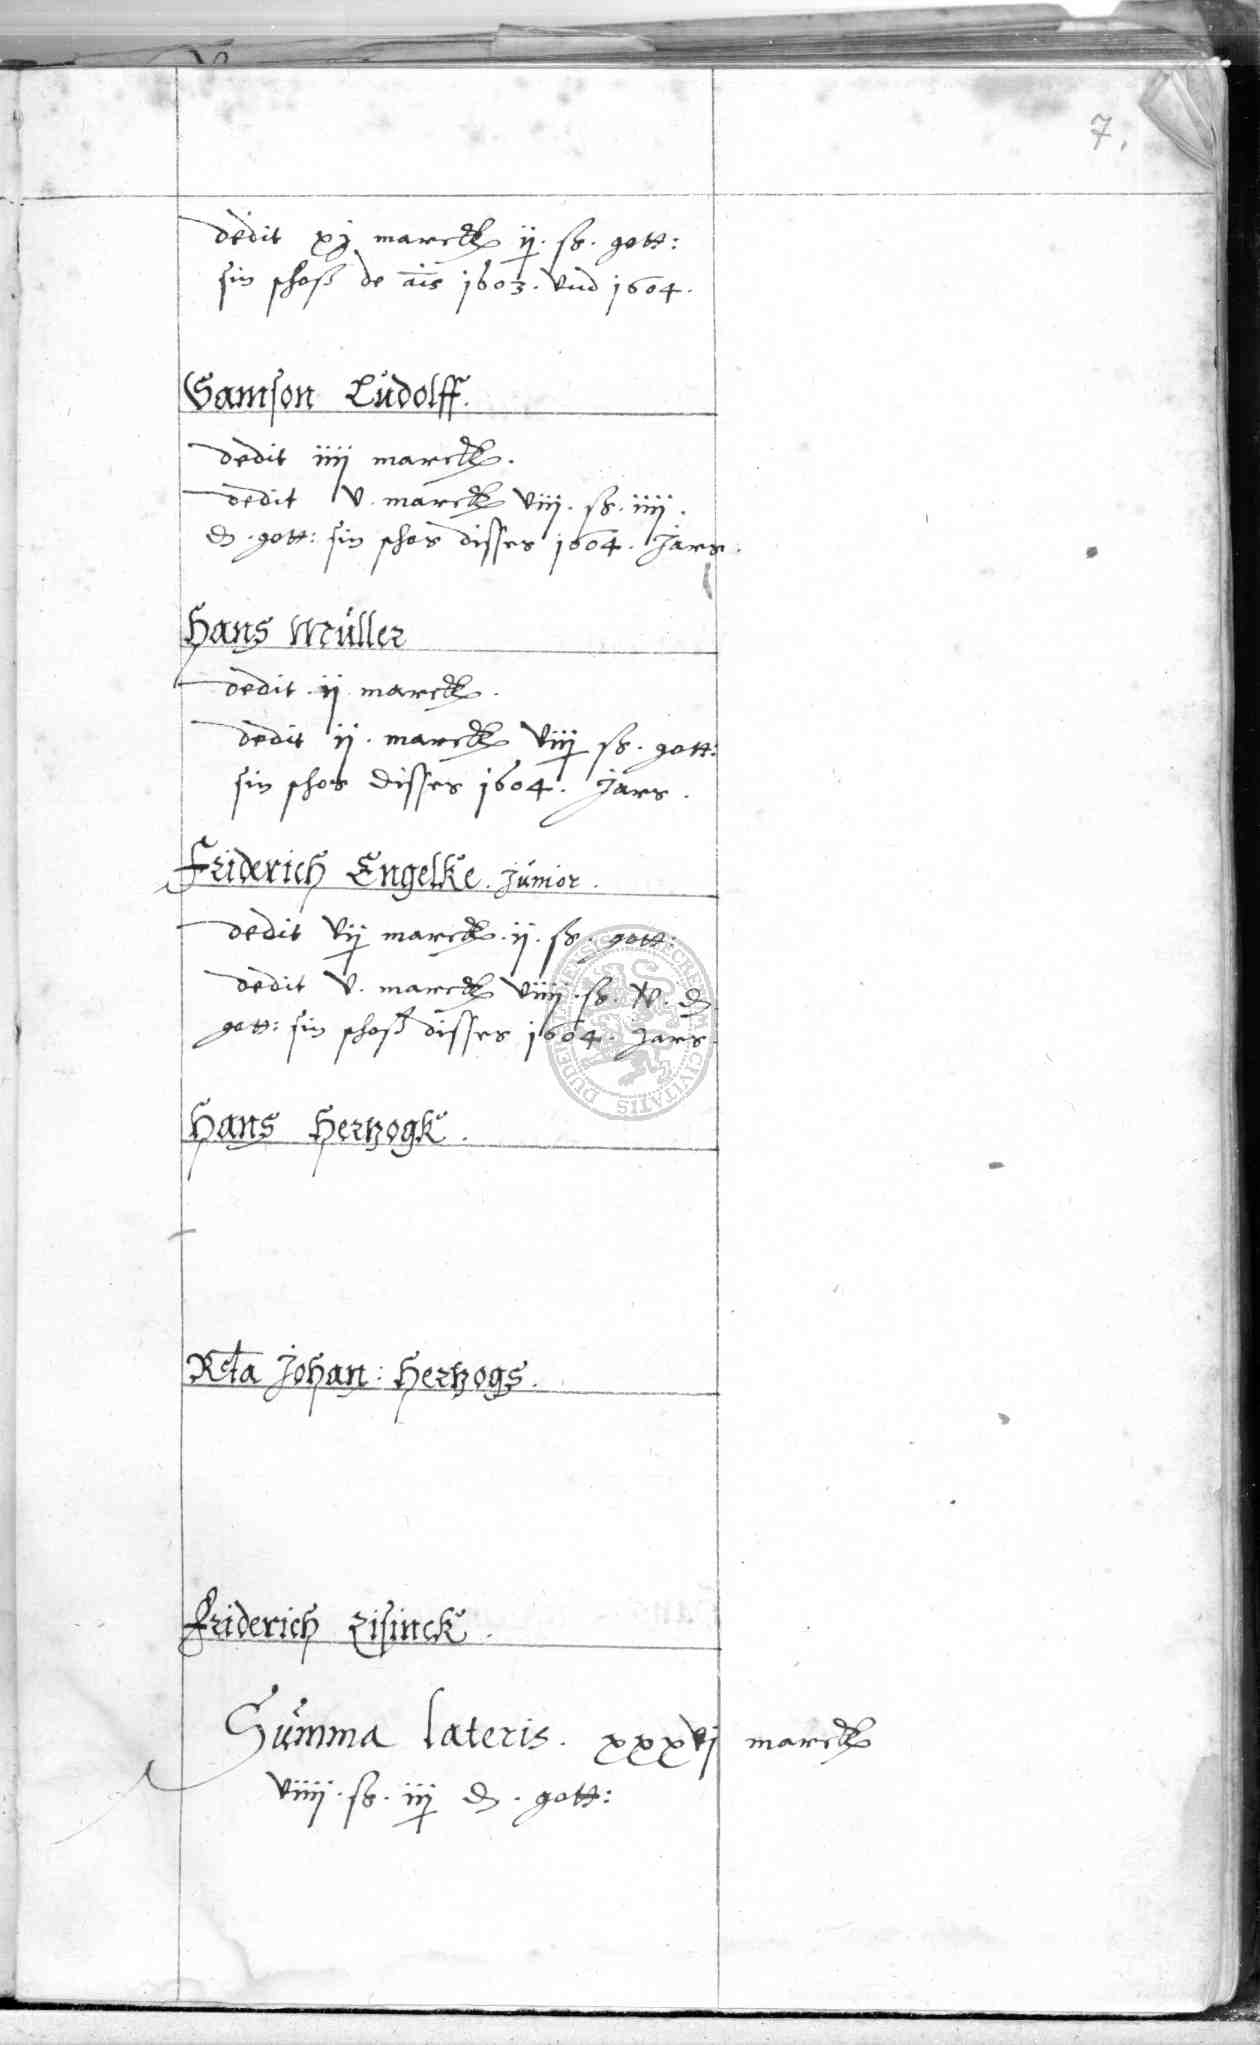 7.
dedit xj marck ij. ß. gott:
sin schoß de añis 1603. vnd 1604.
Samson Ludolff.
dedit iiij marck.
dedit v. marck viij. ß. iiij.
₰. gott: sin schos disses 1604. Jars.
Hans Müller
dedit. ij marck.
dedit ij. marck viij ß. gott:
sin schos disses 1604. Jars.
Friderich Engelke. junior.
dedit vij marck. ij. ß. gott:
dedit v. marck viiij. ß. v. ₰
gott: sin schoß disses 1604. Jars.
Hans Hertzogk.
Rcta Johan: Hertzogs.
Friderich Risinck.
Summa lateris. xxxvj marck
viiij. ß. iij ₰. gott: